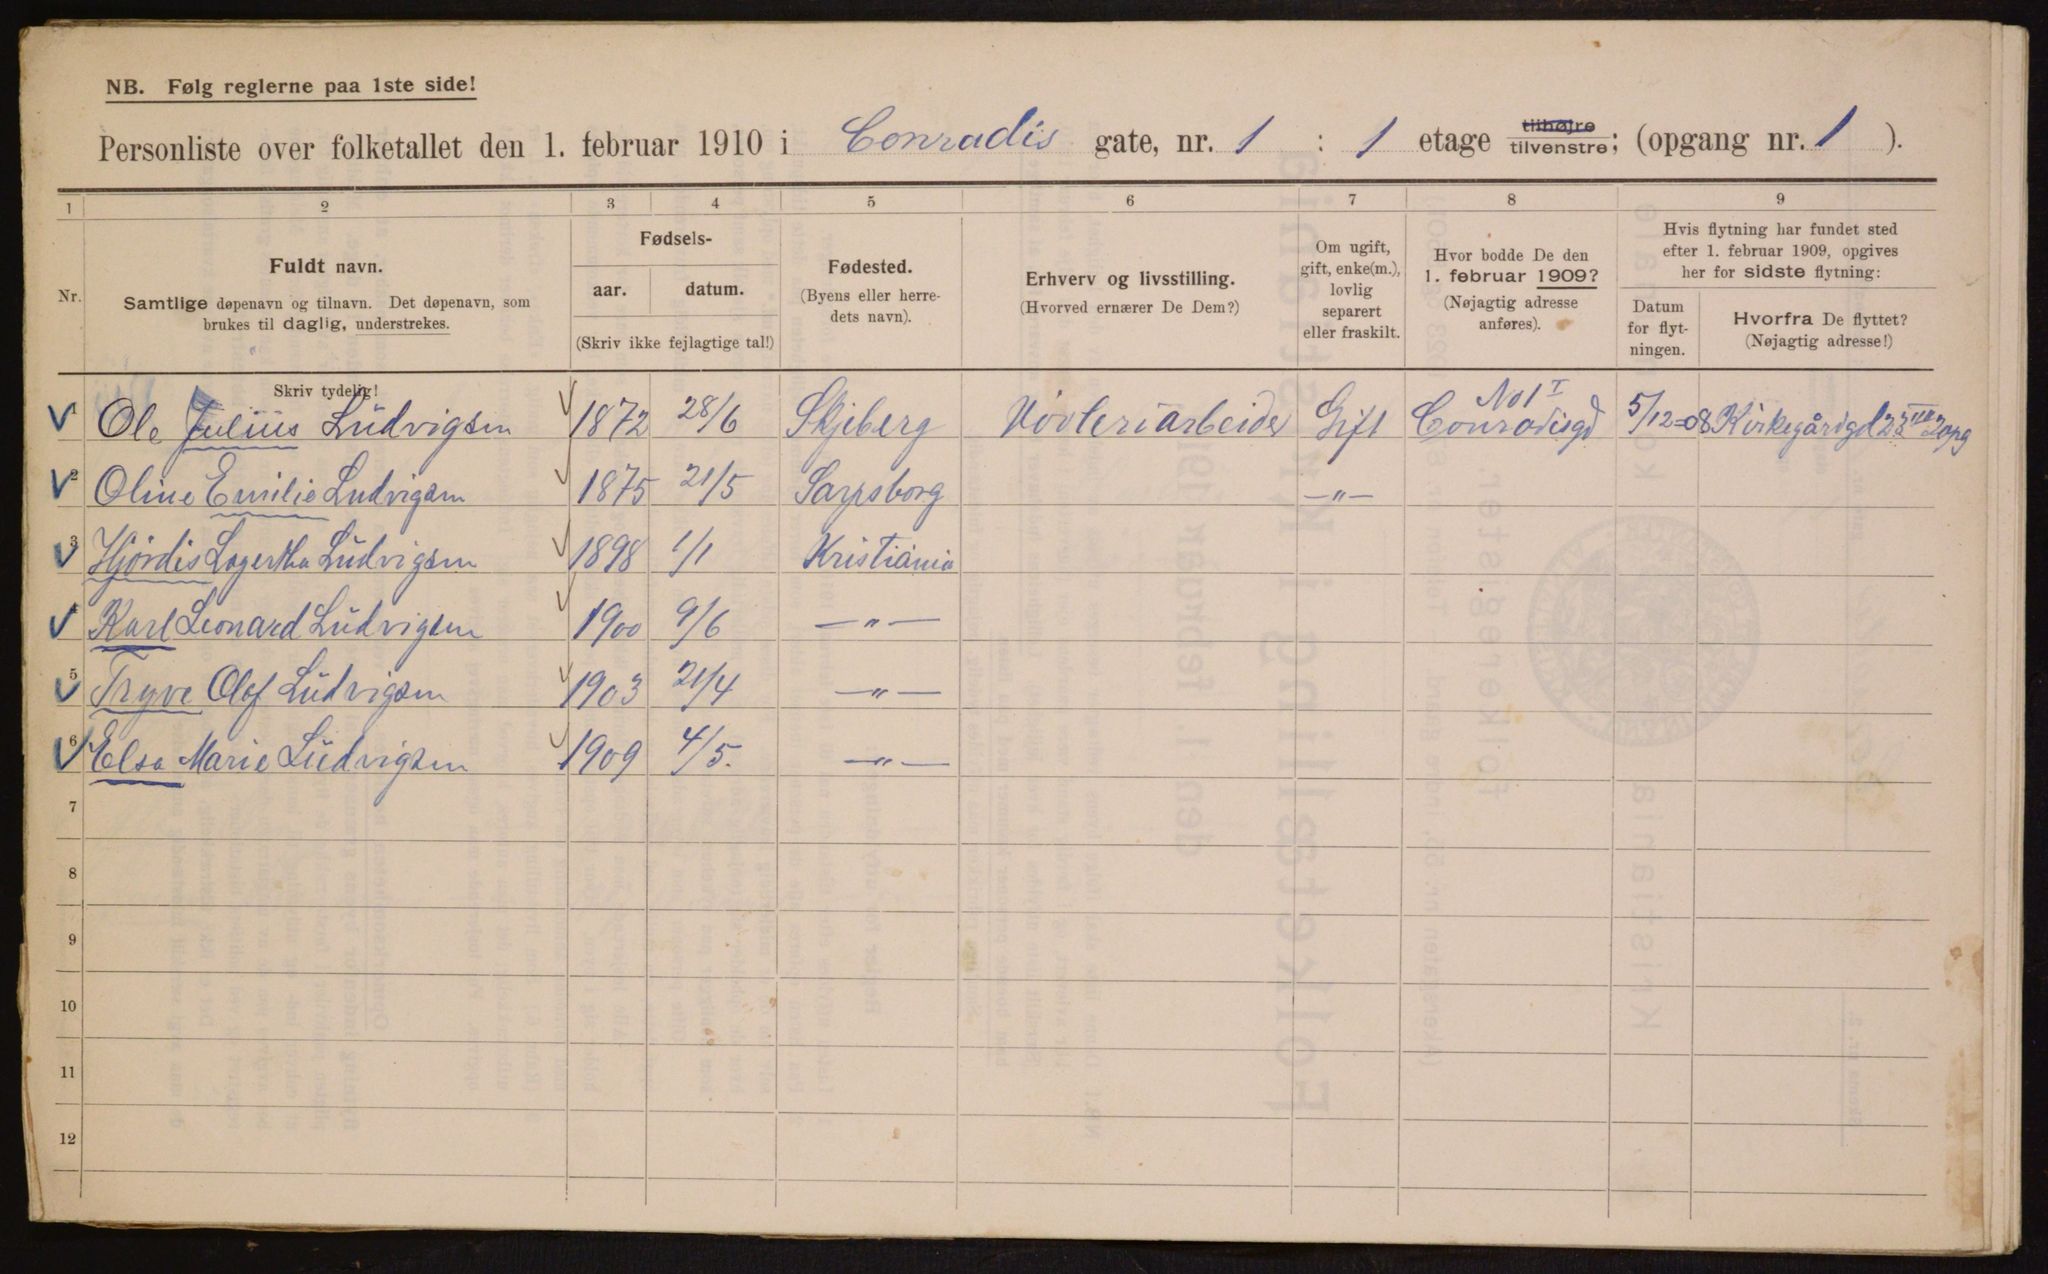 NB. Følg reglerne paa 1ste side!
Personliste over folketallet den 1. februar 1910 i Conradis gate, nr. 1 : 1 etage tilhøjre tilvenstre; (opgang nr. 1 ).
1 2 3 4 5 6 7 8 9
Nr.
Fuldt navn.
Samtlige døpenavn og tilnavn. Det døpenavn, som
brukes til daglig, understrekes.
Skriv tydelig!
Fødsels-
aar. datum.
(Skriv ikke fejlagtige tal!)
Fødested.
(Byens eller herre-
dets navn).
Erhverv og livsstilling.
(Hvorved ernærer De Dem?)
Om ugift,
gift, enke(m.),
lovlig
separert
eller fraskilt.
Hvor bodde De den
1. februar 1909?
(Nøjagtig adresse
anføres).
Hvis flytning har fundet sted
efter 1. februar 1909, opgives
her for sidste flytning:
Datum
for flyt-
ningen.
Hvorfra De flyttet?
(Nøjagtig adresse!)
1 Ole Julius Ludvigsen 1872 28/6 Skjeberg Høvleriarbeider Gift No 1 I Conradisgd 5/12=08 Kirkegårdgd 25
2 Oline Emilie Ludvigsen 1875 21/5 Sarpsborg —"—
3 Hjördis Lagertha Ludvigsen 1898 1/1 Kristiania
4 Karl Leonard Ludvigsen 1900 9/6 —"—
5 Tryve Olof Ludvigsen 1903 21/4 —"—
6 Elsa Marie Ludvigsen 1909 4/5. —"—
7
8
9
10
11
12